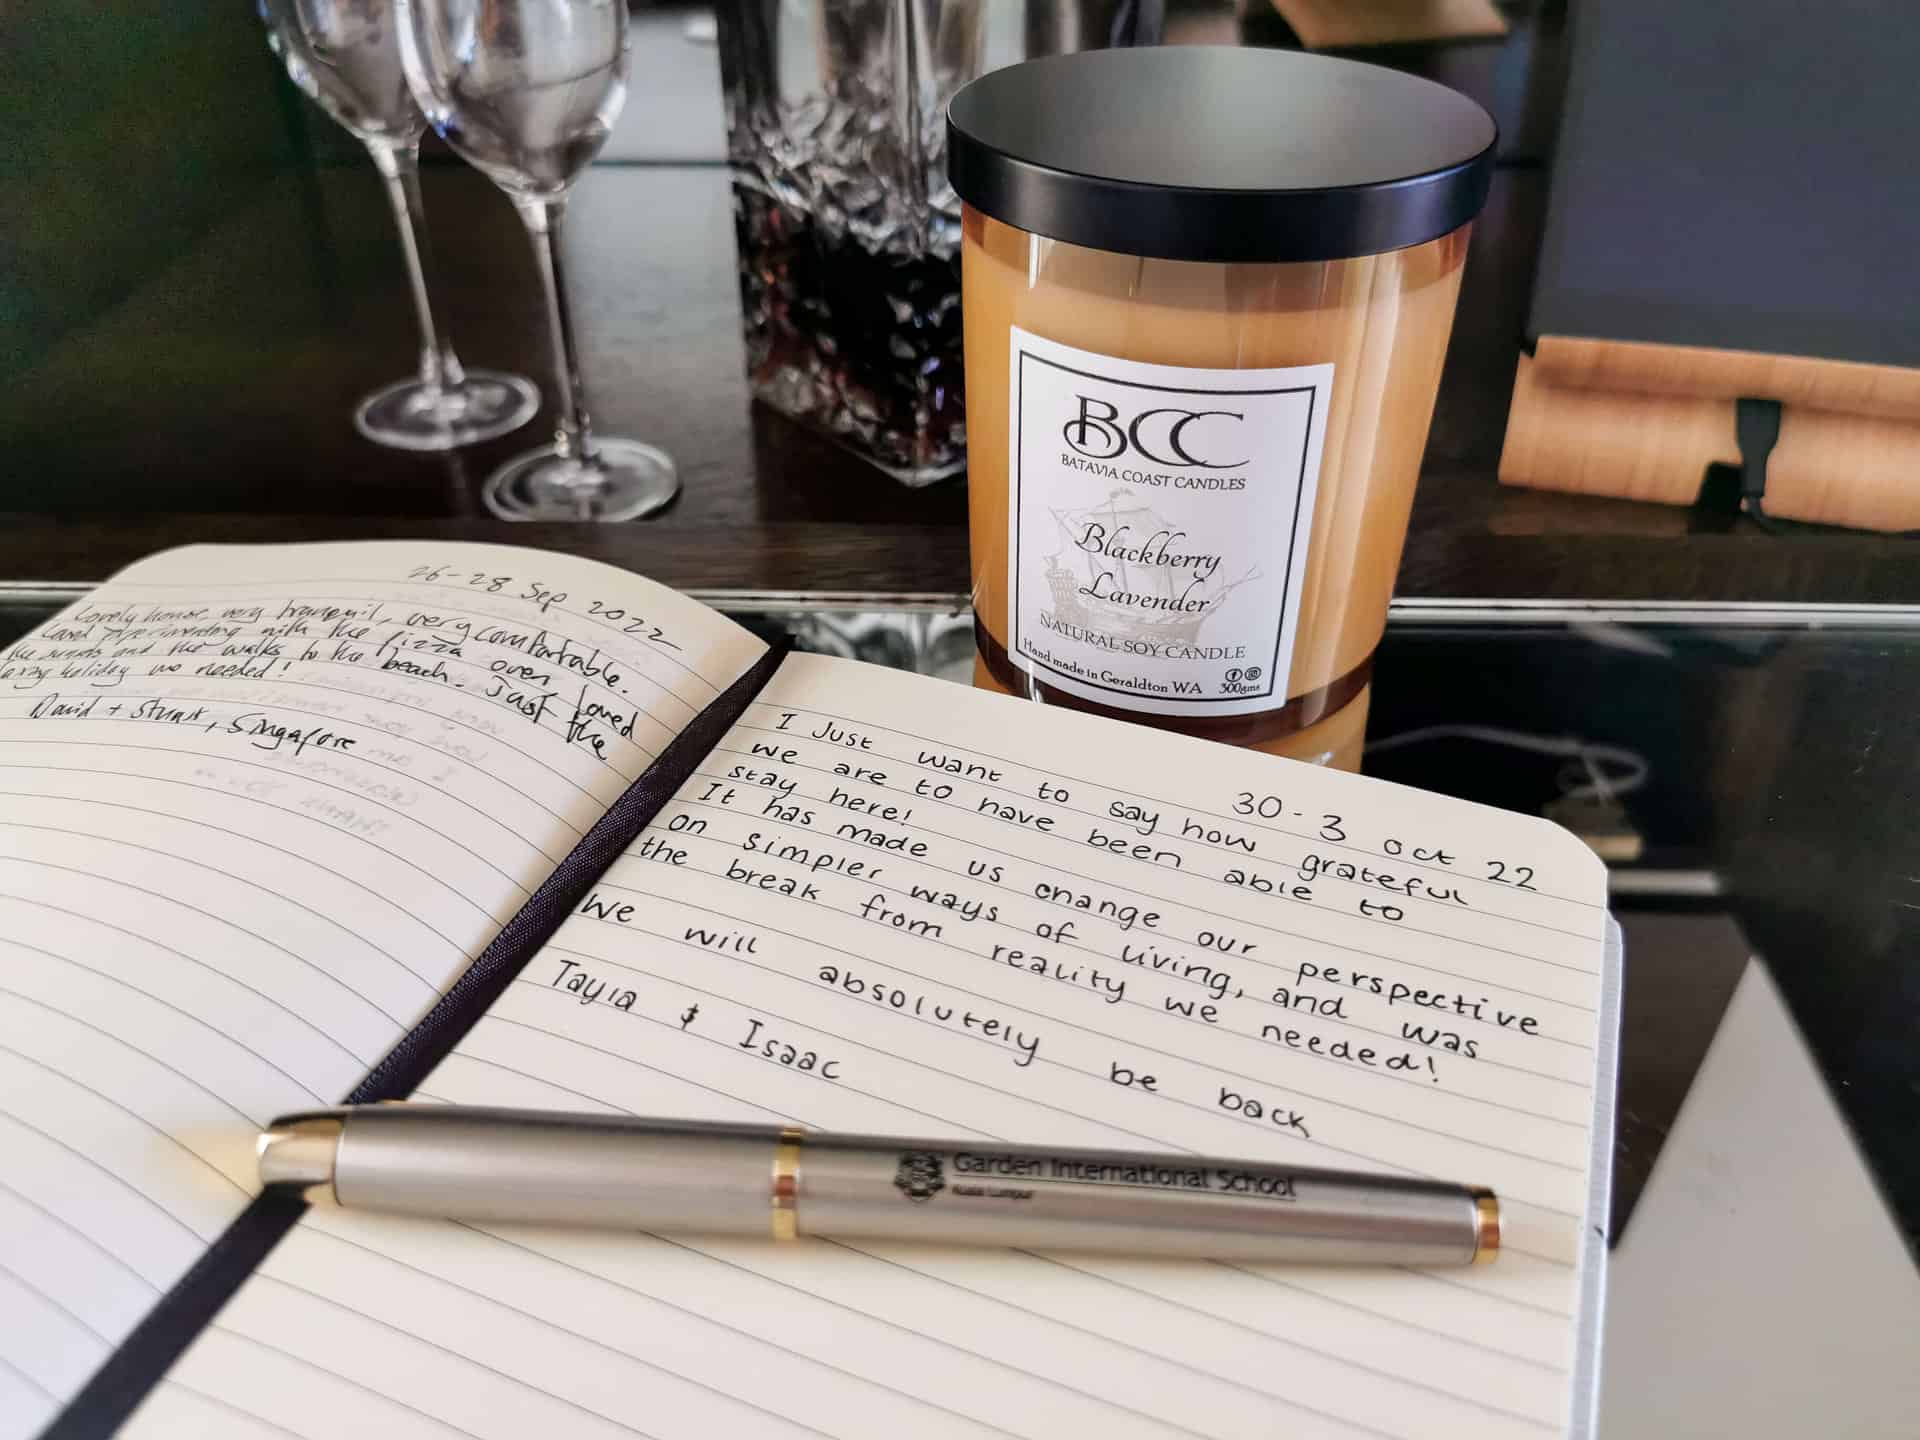 26-28 Sep 2022
Lovely house, very tranquil, very comfortable.
Loved experimenting with the pizza oven, loved
the sunsets and the walks to the beach. Just the
lazy holiday we needed!
David + Stuart, Singapore
30 - 3 oct 22
I Just want to say how grateful
we are to have been able to
stay here!
It has made us change our perspective
on simpler ways of living, and was
the break from reality we needed!
We will absolutely be back
Tayla & Isaac
BCC
BATAVIA COAST CANDLES
Blackberry
Lavender
NATURAL SOY CANDLE
Hand made in Geraldton WA
300gms
Garden International School
Kuala Lumpur